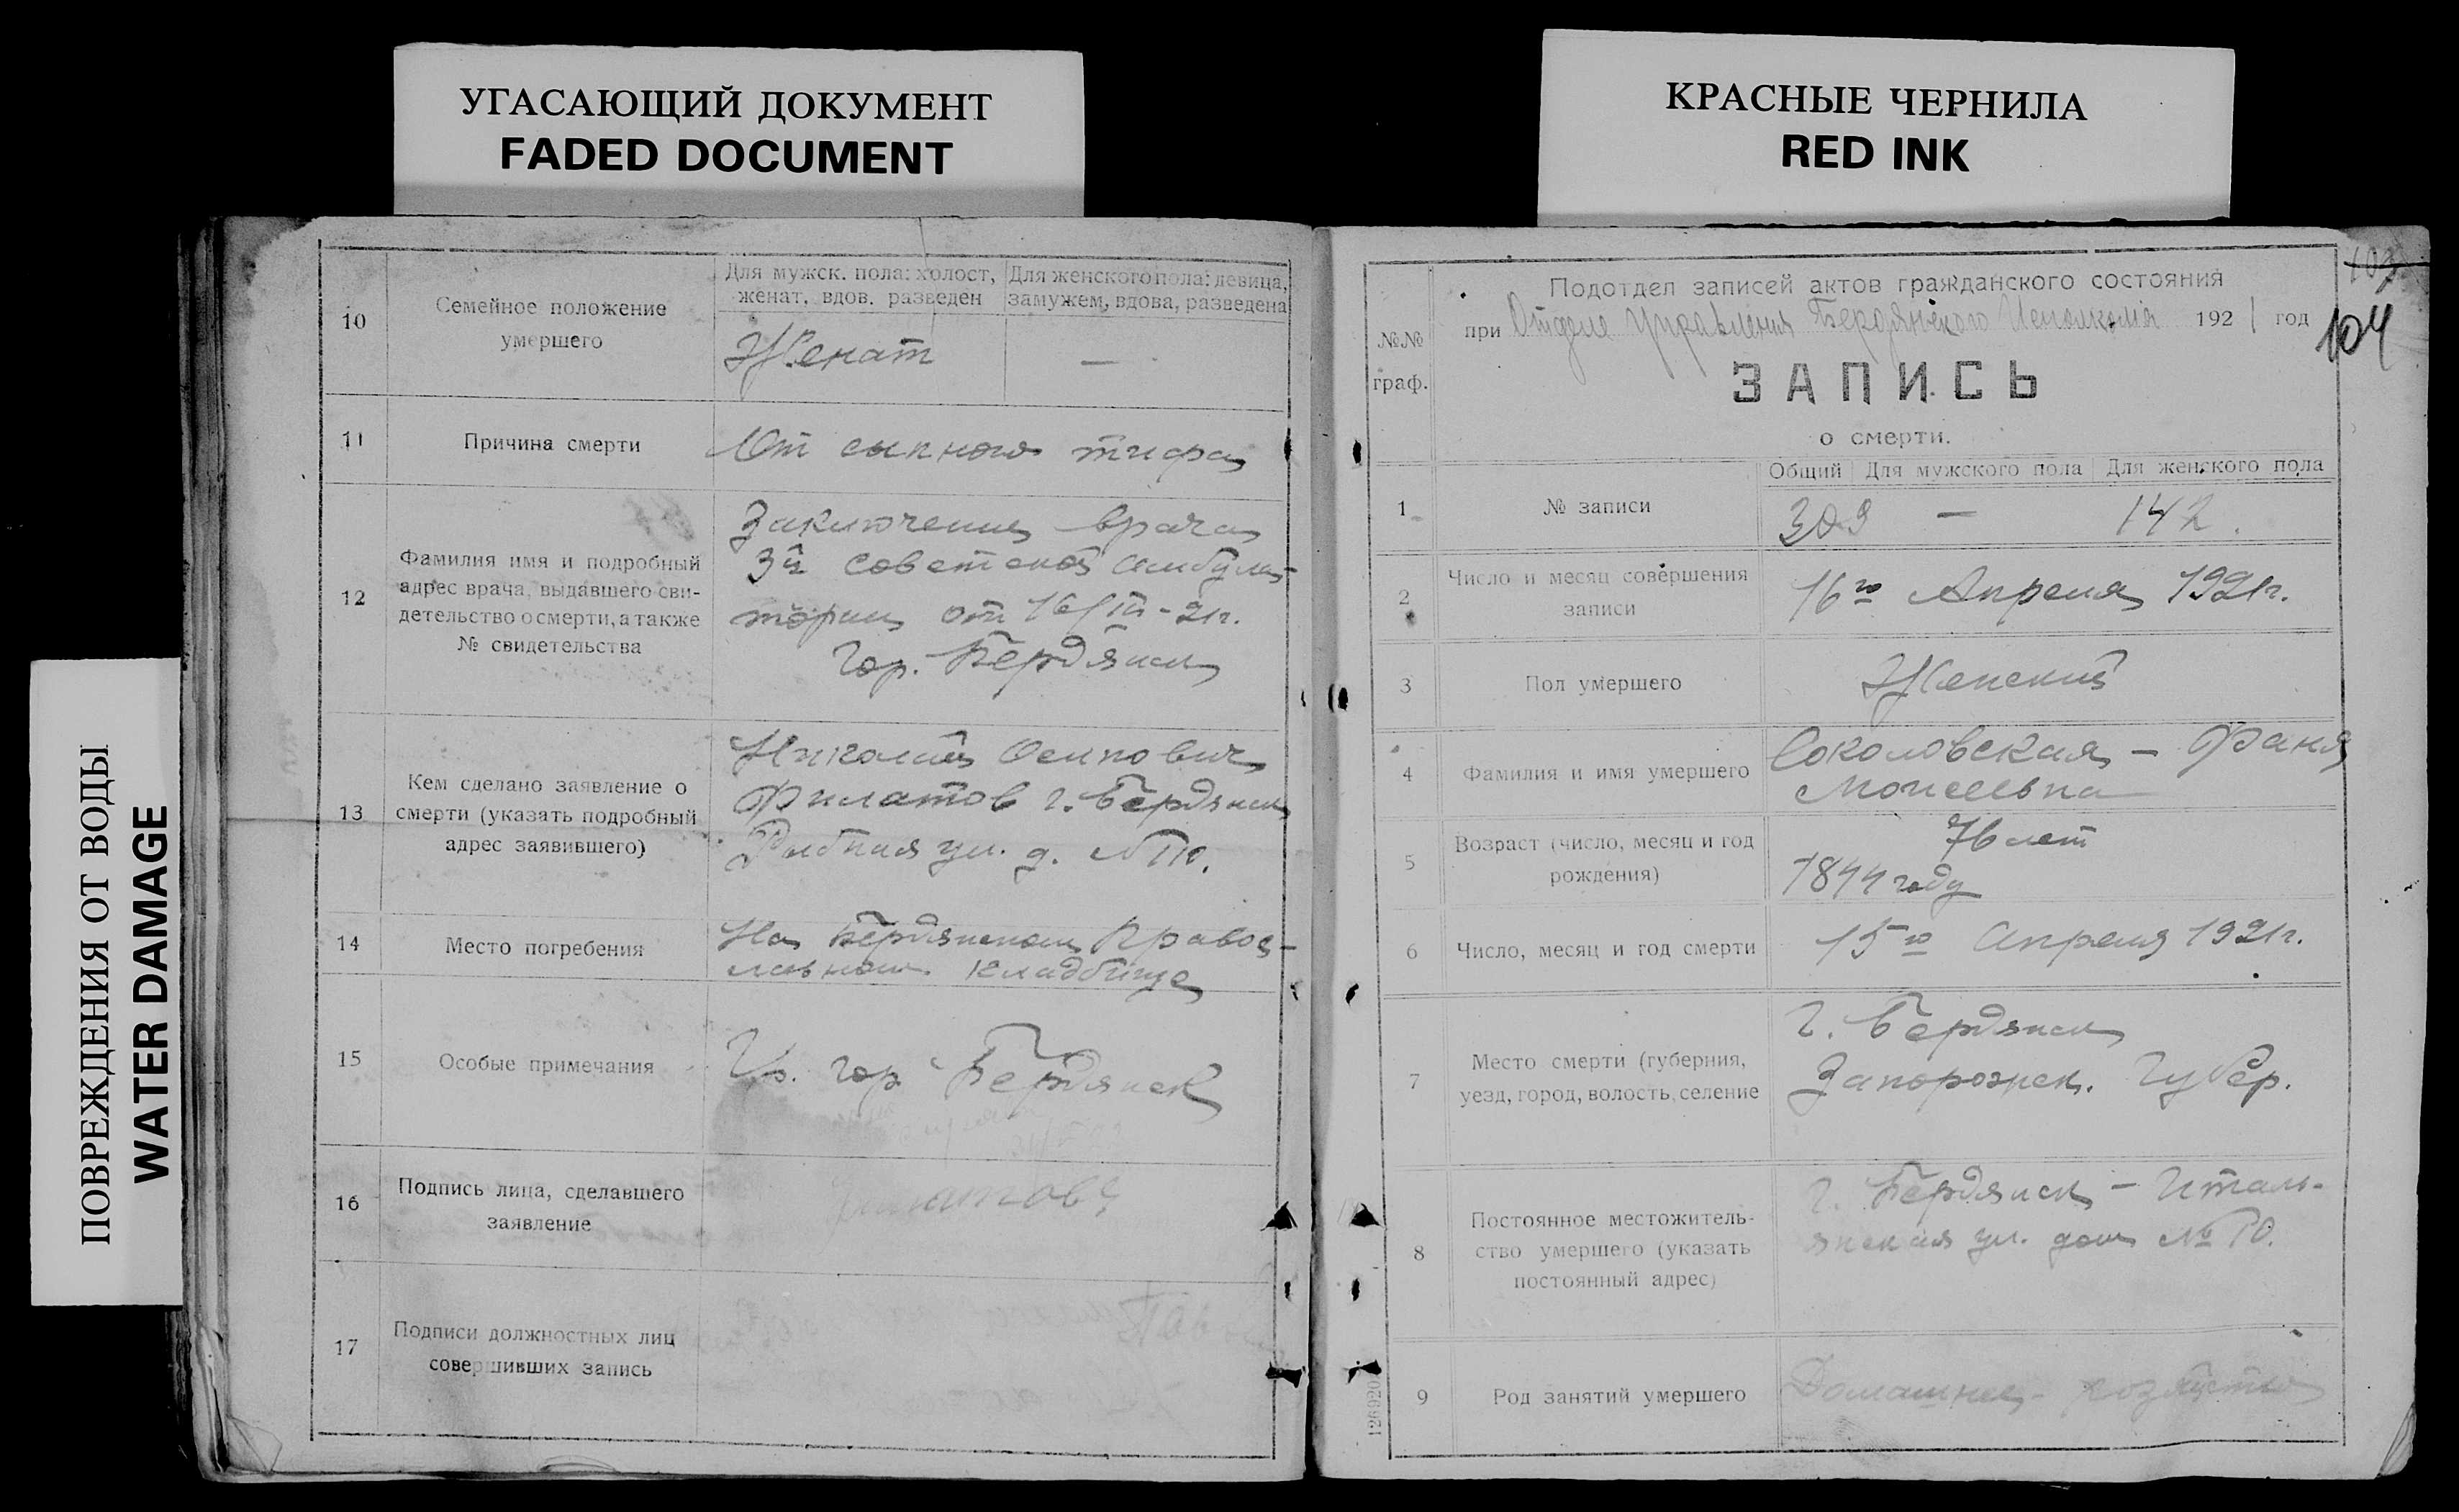 УГАСАЮЩИЙ ДОКУМЕНТ
FADED DOCUMENT
КРАСНЫЕ ЧЕРНИЛА
RED INK
ПОВРЕЖДЕНИЯ ОТ ВОДЫ
WATER DAMAGE
10
Семейное положение
умершего
Для мужск. пола: холост,
женат, вдов. разведен
Для женского пола: девица,
замужем, вдова, разведена
Женат
—
11
Причина смерти
От сыпного тифа
12
Фамилия имя и подробный
адрес врача, выдавшего сви-
детельство о смерти, а также
№ свидетельства
Заключение врача
3й советской амбула-
тории от 16/IV-21г.
Гор. Бердянск
13
Кем сделано заявление о
смерти (указать подробный
адрес заявившего)
Николай Осипович
Филатов г. Бердянск
Рыбная ул. д. №10.
14
Место погребения
На Бердянском Правос-
лавном кладбище
15
Особые примечания
Гр. гор Бердянск
16
Подпись лица, сделавшего
заявление
Филатов
17
Подписи должностных лиц
совершивших запись
103
104
№№
граф.
Подотдел записей актов гражданского состояния
при Отделе Управления Бердянского Исполкома 1921 год
ЗАПИСЬ
о смерти.
1
№ записи
Общий Для мужского пола Для женского пола
309 — 142.
2
Число и месяц совершения
записи
16го Апреля 1921г.
3
Пол умершего
Женский
4
Фамилия и имя умершего
Соколовская - Фаня
Моисеевна
5
Возраст (число, месяц и год
рождения)
76 лет
1844 году
6
Число, месяц и год смерти
15го Апреля 1921г.
7
Место смерти (губерния,
уезд, город, волость, селение
г. Бердянск
Запорожск. Губер.
8
Постоянное местожитель-
ство умершего (указать
постоянный адрес)
г. Бердянск - Италь-
янская ул. дом № 10.
9
Род занятий умершего
Домашнее - хозяйство
126920